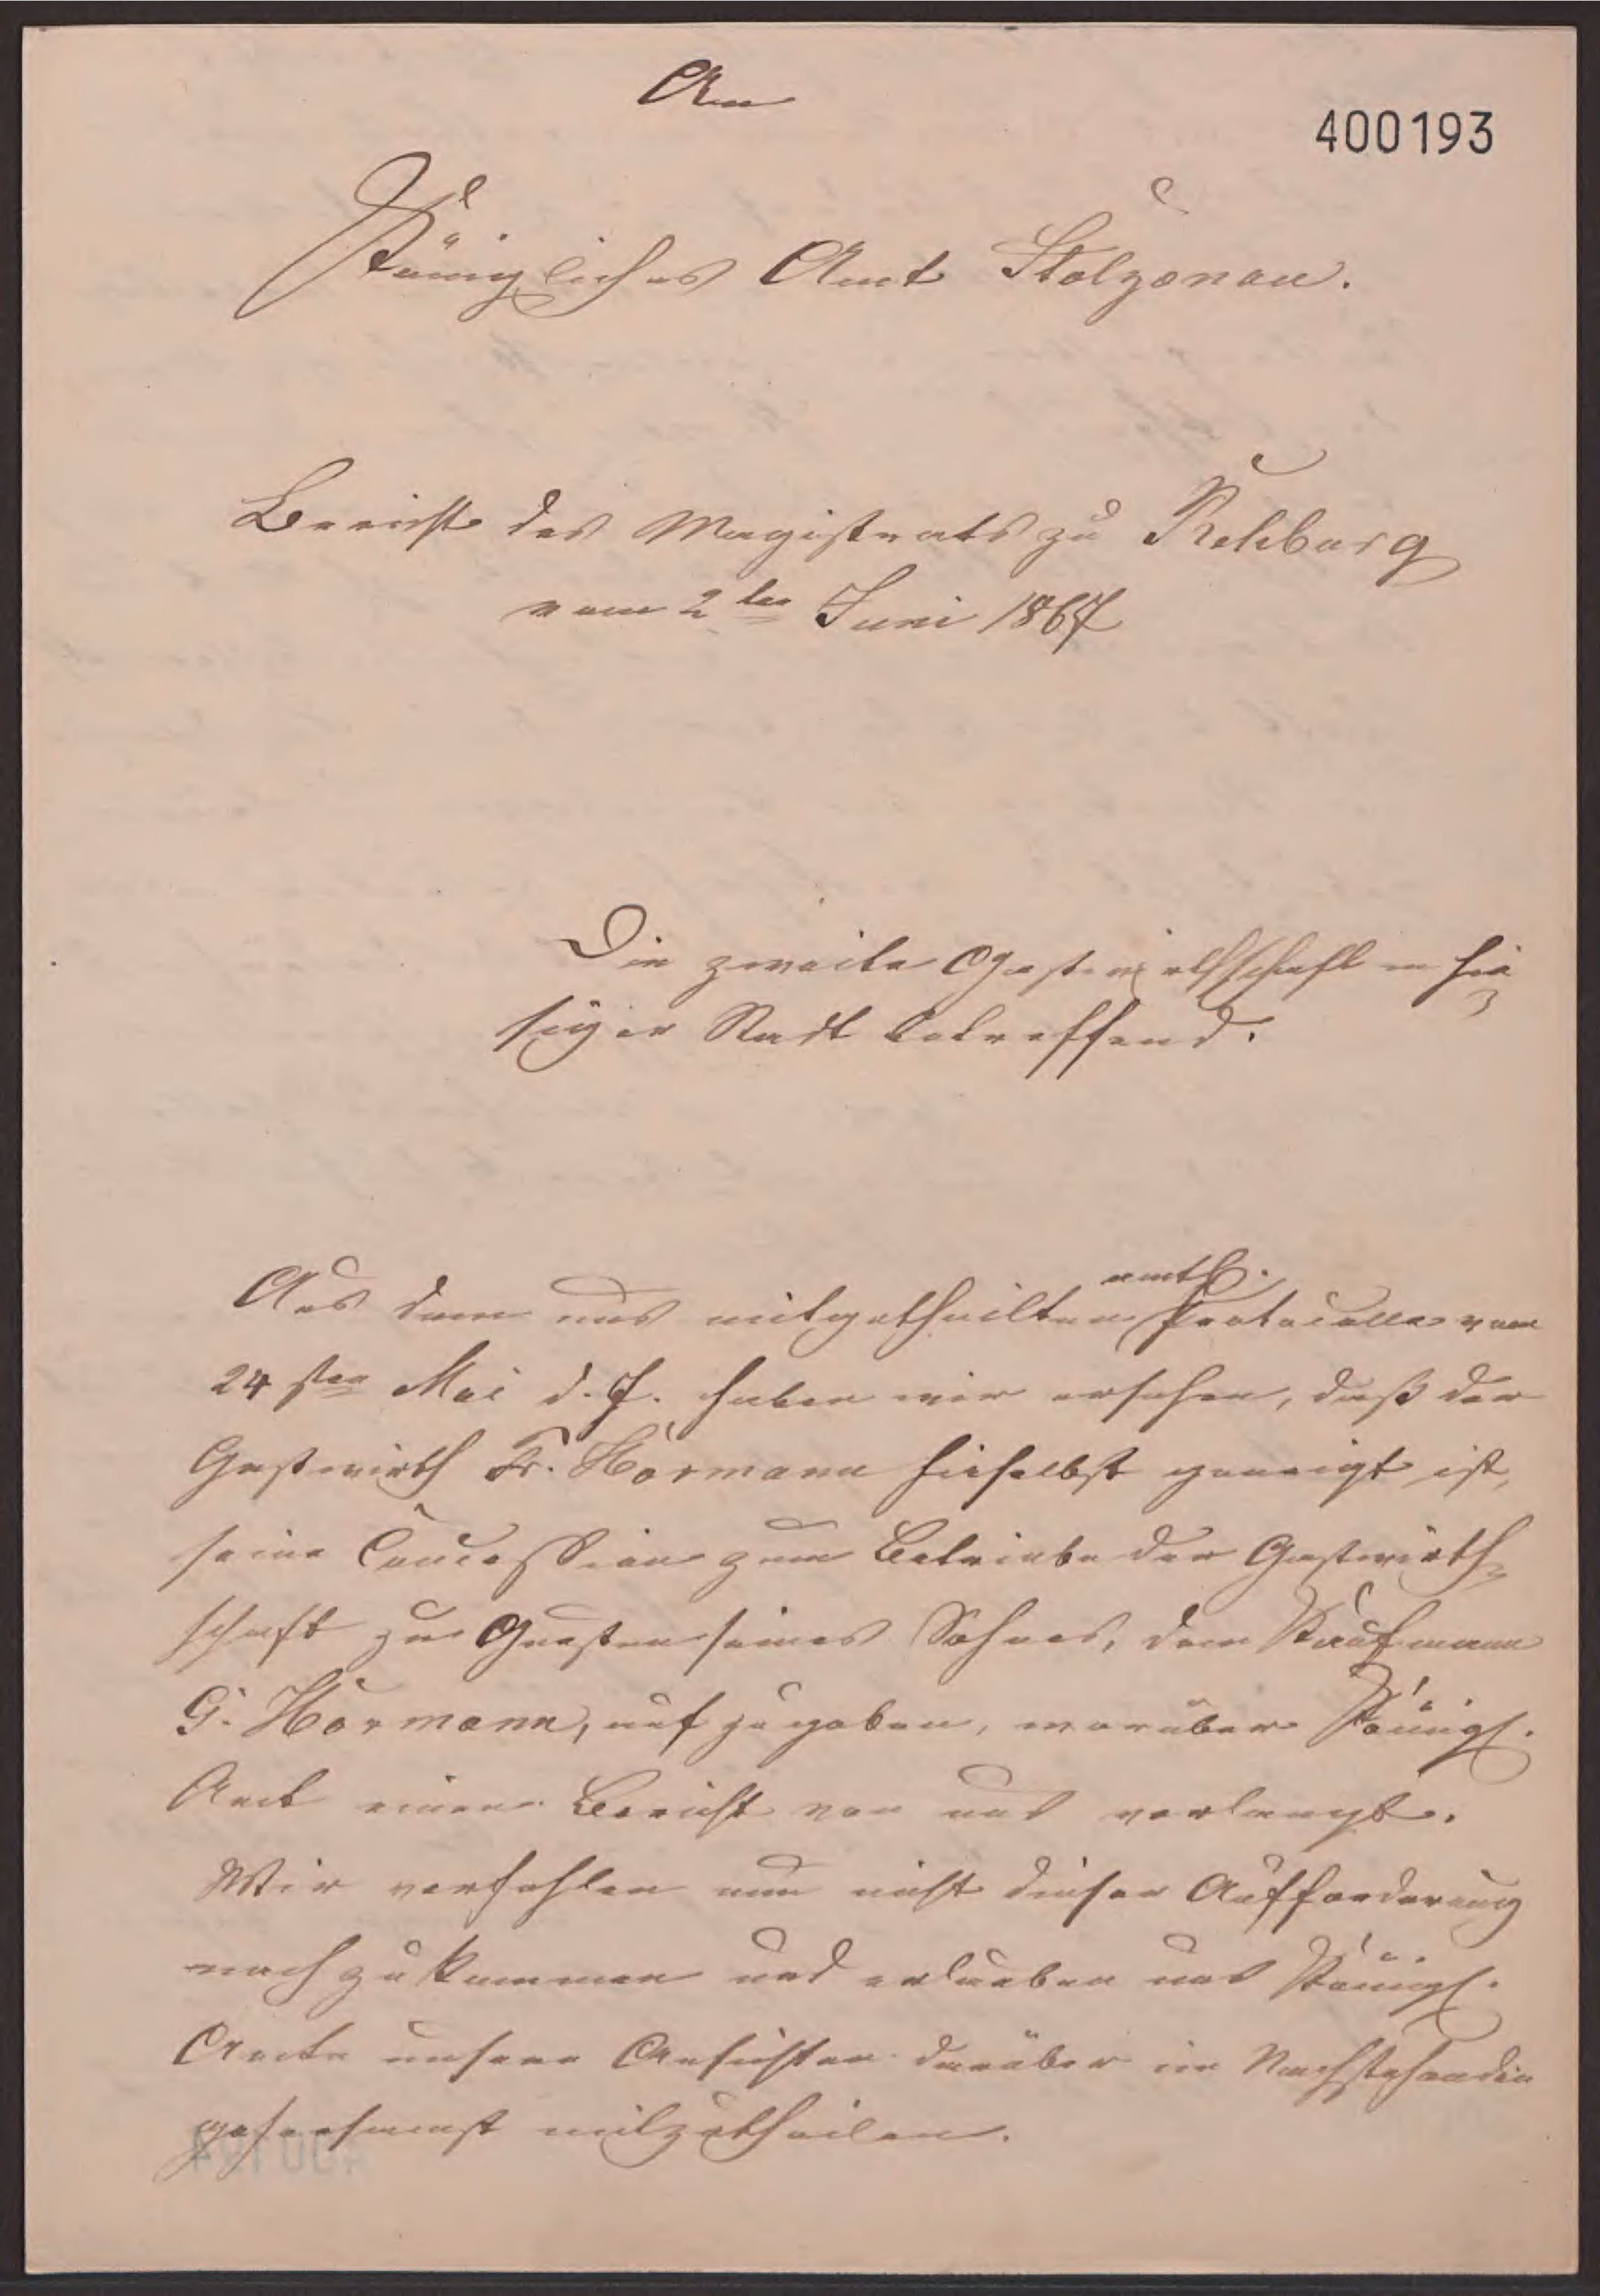 An
400193
Königliches Amt Stolzenau.
Bericht des Magistrats zu Rehburg
vom 2ten Juni 1867
Die zweite Gastwirthschaft in hie-
siger Stadt betreffend.
amtl.
Aus dem uns mitgetheilten Protocolle vom
24sten Mai d. J. haben wir ersehen, daß der
Gastwirth Fr. Hörmann hieselbst geneigt ist,
seine Concession zum Betriebe der Gastwirth-
schaft zu Gunsten seines Sohnes, dem Kaufmann
G. Hörmann, aufzugeben, worüber Königl.
Amt einen Bericht von uns verlangt.
Wir verfehlen nun nicht dieser Aufforderung
nachzukommen und erlauben uns Königl.
Amte unsere Ansichten darüber im Nachstehenden
gehorsamst mitzutheilen.